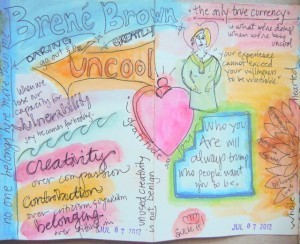 Brené Brown
DARING GREATLY
uncool
When we
lose our
capacity for
vulnerability
joy becomes foreboding.
creativity
over comparison
contribution
over criticism & cynicism
belonging
over fitting in
no one belongs here more than
the only true currency
is what we share
when we're being
uncool.
your experiences
cannot exceed
your willingness
to be vulnerable.
gratitude
Who you
are will
always trump
who people want
you to be.
unused creativity
is not benign
suck it
JUL 07 2012
JUL 07 2012